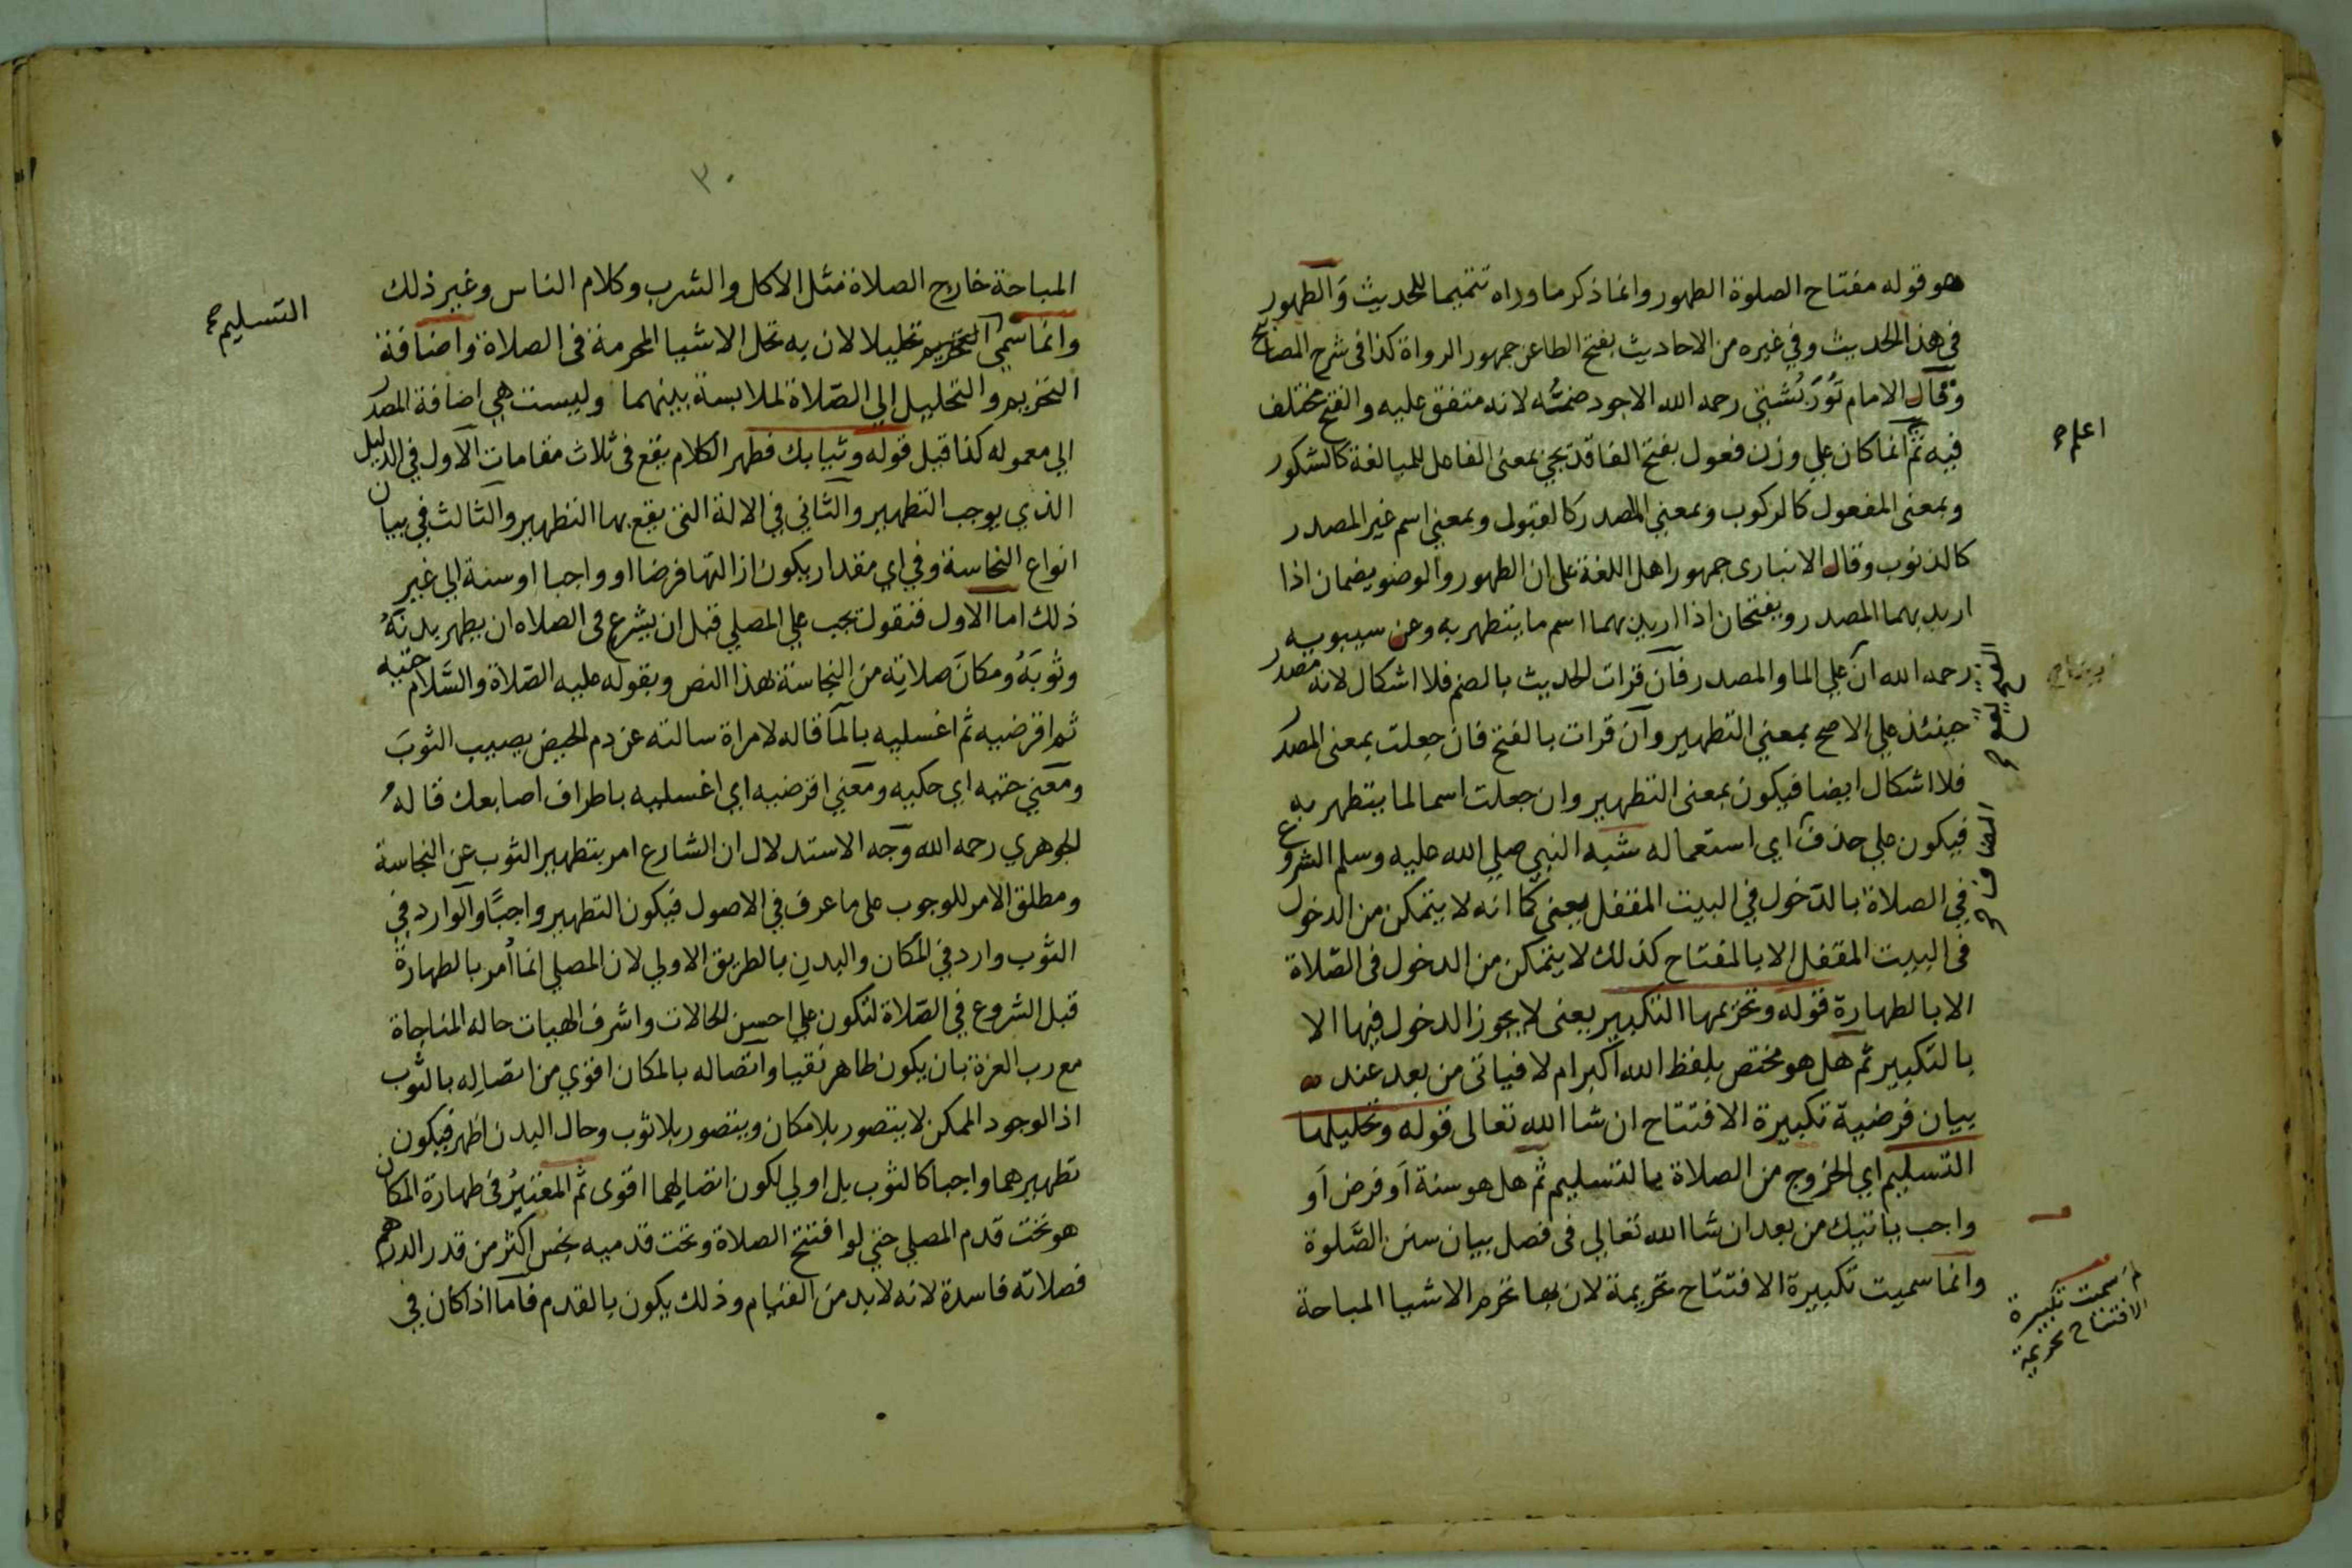 هو قوله مفتاح الصلوة الطهور وانما ذكر ما وراه تتميما للحديث وَالطهور
في هذا الحديث وفي غيره من الاحاديث بفتح الطا عن جمهور الرواة كذا فى شرح المصابيح
وقال الامام تُوْرَبُشتي رحمه الله الاجود ضمُّه لانه متفق عليه والفتح مختلف
فيه ثم انما كان علي وزن فعول بفتح الفا قد يجي بمعنى الفاعل للمبالغة كالشكور
وبمعنى المفعول كالركوب وبمعني المصدر كالقبول وبمعني اسم غير المصدر
كالذنوب وقال الانبارى جمهور اهل اللغة على ان الطهور والوضو يضمان اذا
اريد بهما المصدر ويفتحان اذا اريد بهما اسم ما يتطهر به وعن سيبويه
رحمه الله ان علي الما والمصدر فان قرات الحديث بالضم فلا اشكال لانه مصدر
حينئذ علي الاصح بمعني التطهير وان قرات بالفتح فان جعلت بمعنى المصدر
فلا اشكال ايضا فيكون بمعنى التطهير وان جعلت اسما لما يتطهر به
فيكون علي حذف اي استعماله شبه النبي صلي الله عليه وسلم الشروع
في الصلاة بالدّخول في البيت المقفل يعني كما انه لا يتمكن من الدخول
فى البيت المقفل الا بالمفتاح كذلك لا يتمكن من الدخول فى الصّلاة
الا بالطهارة قوله وتحريمها التكبير يعنى لا يجوز الدخول فيها الا
بالتكبير ثم هل هو مختص بلفظ الله اكبر ام لا فياتى من بعد عند
بيان فرضية تكبيرة الافتتاح ان شا الله تعالى قوله وتحليلها
التسليم اي الخروج من الصلاة بالتسليم ثم هل هو سنة اَو فرض اَو
واجب ياتيك من بعد ان شا الله تعالي فى فصل بيان سنن الصَّلوة
وانما سميت تكبيرة الافتتاح تحريمة لان بها تحرم الاشيا المباحة
اعلم
لم سميت تكبيرة
الافتتاح تحريمة
٣٠
المباحة خارج الصلاة مثل الاكل والشرب وكلام الناس وغير ذلك
وانما سمي التحريم تحليلا لان به تحل الاشيا المحرمة فى الصلاة واضافة
التحريم والتحليل الي الصّلاة لملابسة بينهما وليست هي اضافة المصدر
الي معموله كذا قيل قوله وثيابك فطهر الكلام يقع فى ثلاث مقامات الاول في الدليل
الذي يوجب التطهير والثاني في الالة التى يقع بها التطهير والثالث في بيان
انواع النجاسة وفي اي مقدار يكون ازالتها فرضا او واجبا او سنة الي غير
ذلك اما الاول فنقول يجب علي المصلي قبل ان يشرع فى الصلاه ان يطهر بدنَهُ
وثوبَهُ ومكانَ صلاتِه من النجاسة لهذا النص وبقوله عليه الصّلاة والسَّلام حتيه
ثم اقرضيه ثم اغسليه بالمآ قاله لامراة سالته عن دم الحيض يصيب الثوبَ
ومعني حتيه اي حكيه ومعني اقرضيه اي اغسليه باطراف اصابعك قالهُ
الجوهري رحمه الله وَجه الاستدلال ان الشارع امر بتطهير الثوب عن النجاسة
ومطلق الامر للوجوب على ما عرف في الاصول فيكون التطهير واجبًا والوارد في
الثوب وارد في المكان والبدنِ بالطريق الاولي لان المصلي انما اُمر بالطهارة
قبل الشروع في الصّلاة لتكون علي احسن الحالات واشرف الهيات حاله المناجاة
مع رب العزة بان يكون طاهر نقيا واتصاله بالمكان اقوي من اتصالِه بالثوب
اذ الوجود الممكن لا يتصور بلا مكان ويتصور بلا ثوب وحال البدن اظهر فيكون
تطهيرهما واجبا كالثوب بل اولي لكون اتصالهما اقوى ثم المعتبرُ فى طهارة المكان
هو تحت قدم المصلي حتي لو افتتح الصلاة وتحت قدميه نجس اكثر من قدر الدرهم
فصلاته فاسدة لانه لا بد من القيام وذلك يكون بالقدم فاما اذا كان في
التسليم